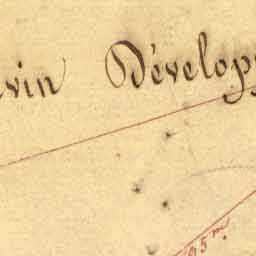 vin Dévelop
95 m.